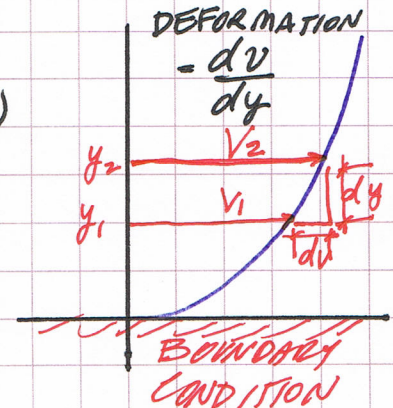 DEFORMATION
= dv
dy
)
y2 V2
y1 V1
dy
dv
BOUNDARY
CONDITION